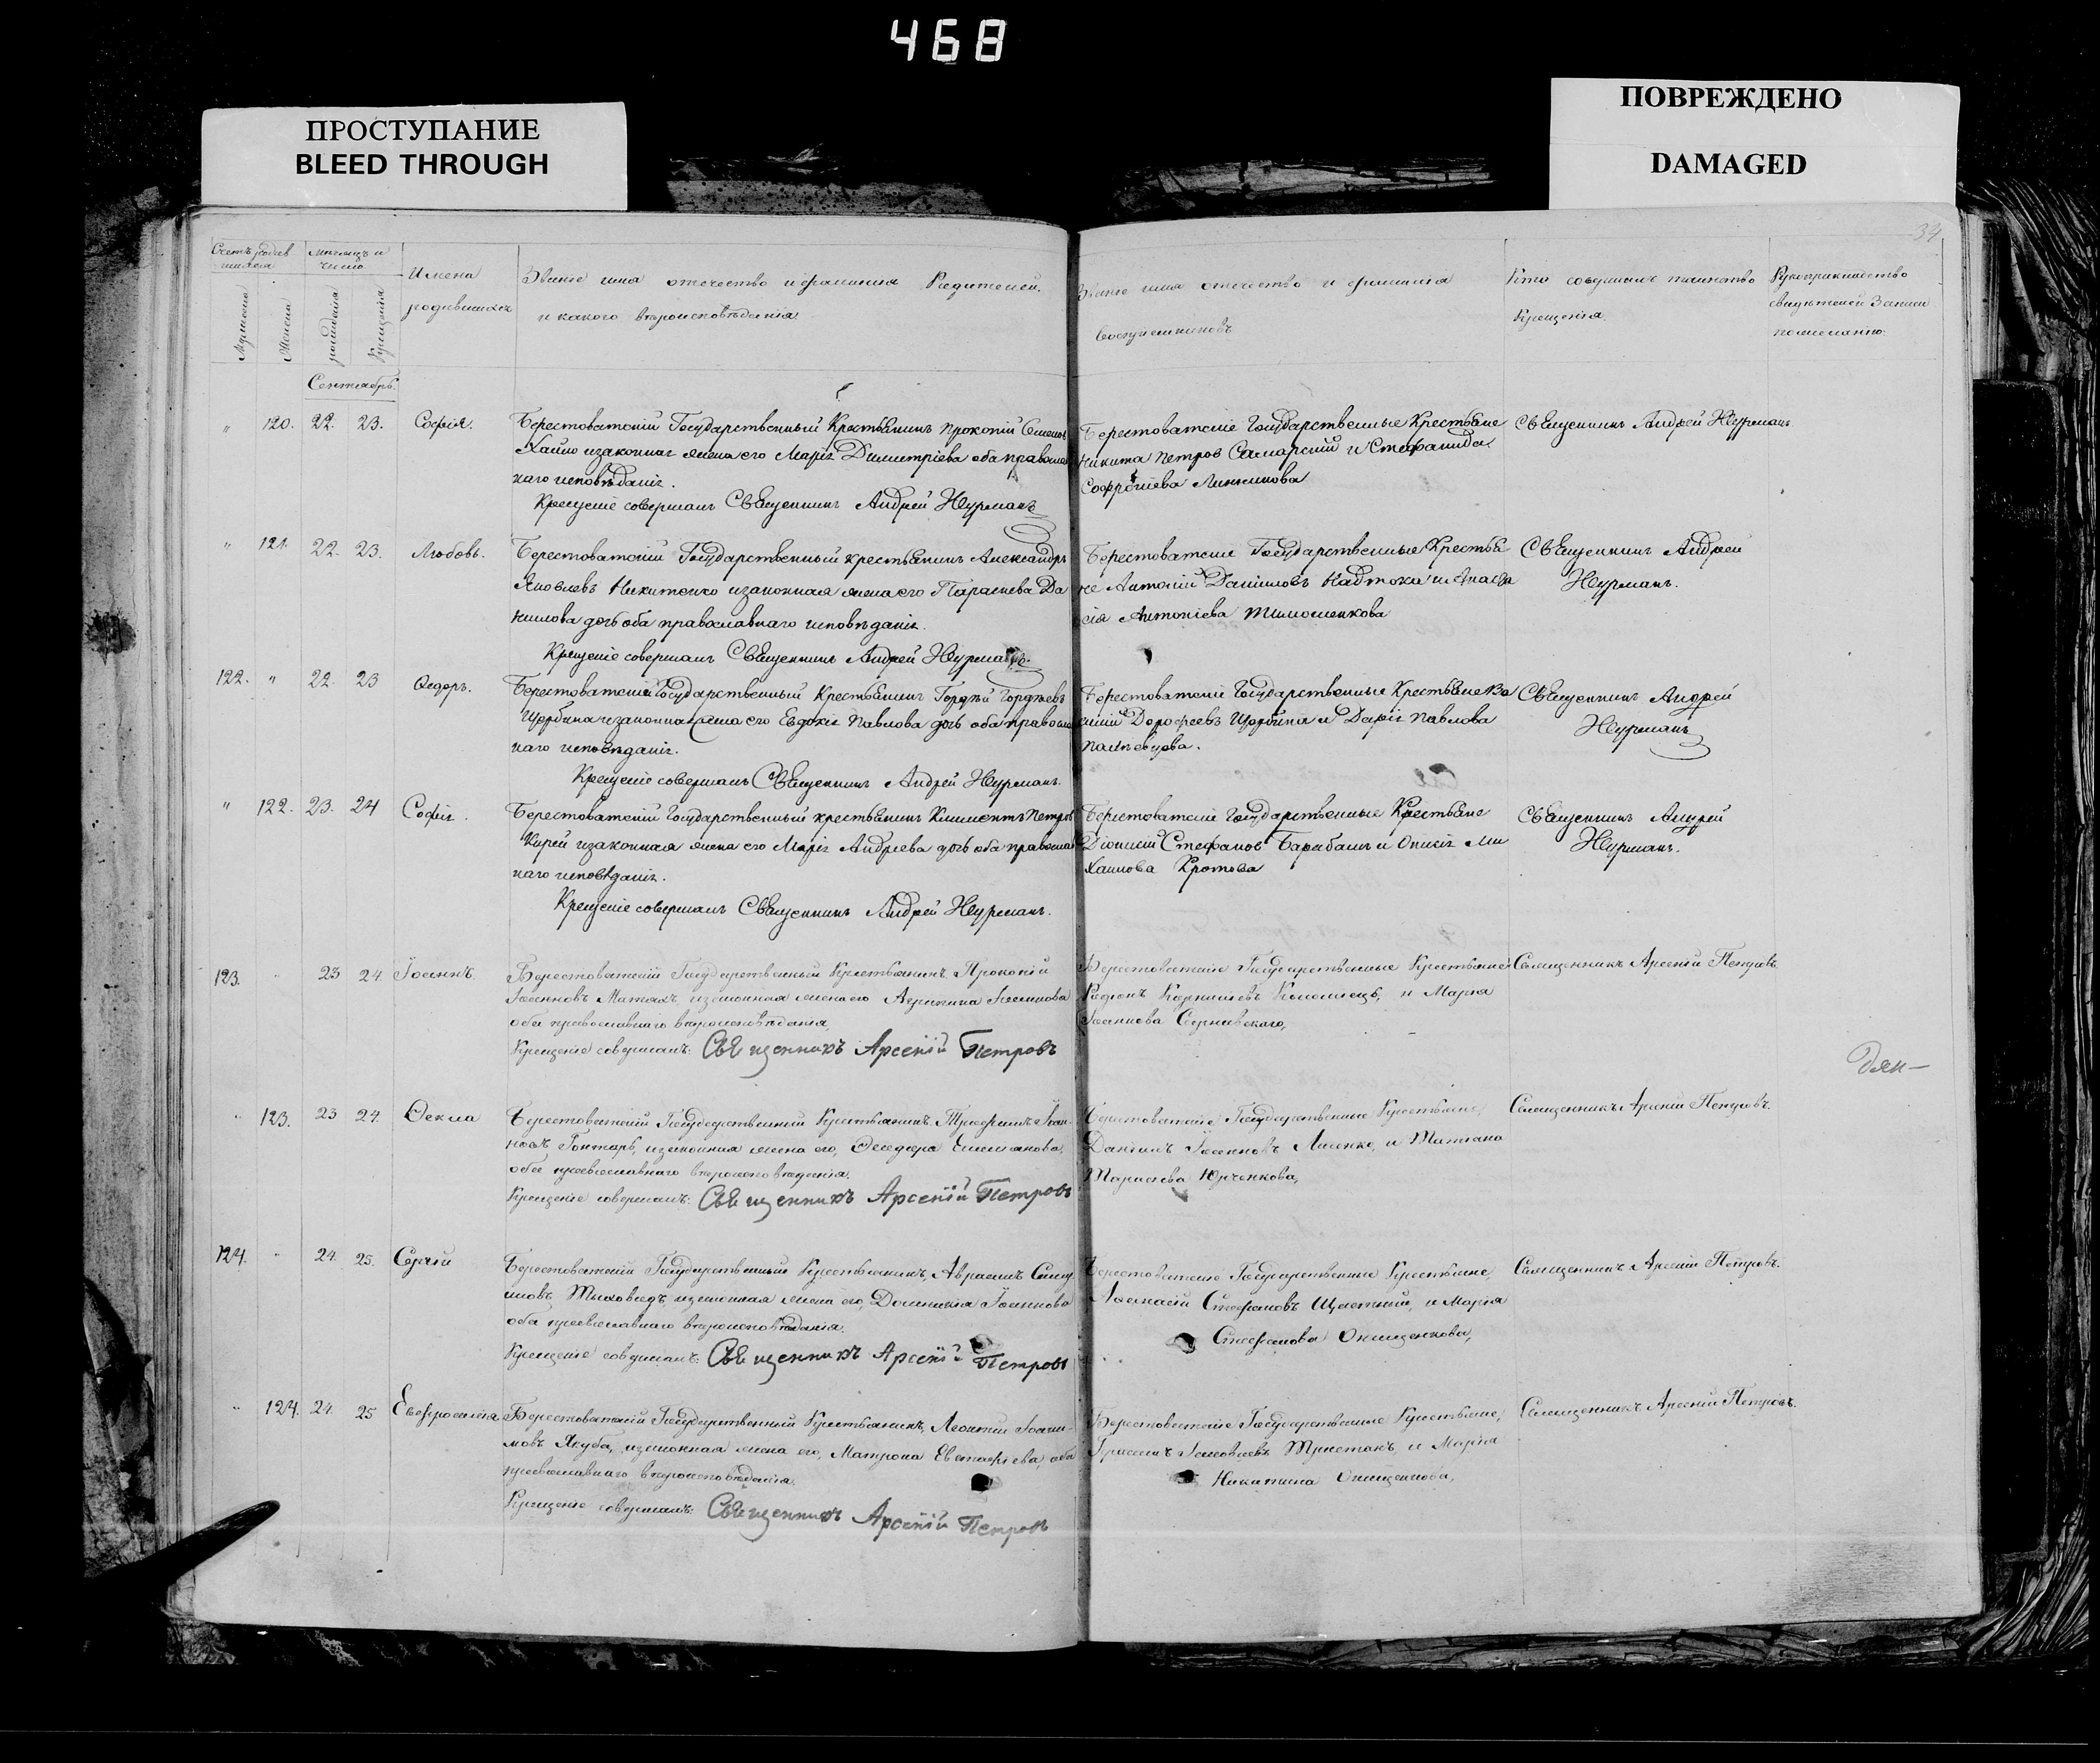 468
ПРОСТУПАНИЕ
BLEED THROUGH
ПОВРЕЖДЕНО
DAMAGED
34
Счетъ родив
шихся
мѣсяцъ и
число
Имена
родившихся
Званіе имя отечество и фамилія Родителей.
и какого вѣроисповѣданія
Званіе имя отечество и фамилія
воспріемниковъ
Кто совершалъ таинство
Крещенія.
Рукоприкладство
свидѣтелей Записи
по желанію.
Мужеска
Женска
рожденія
Крещенія
Сентябрь.
" 120. 22. 23. Софія.
Берестоватскій Государственный Крестьянинъ Прокопій Семенов
Хайло изаконная жена его Марія Димитріева оба православ
наго исповѣданія.
Крещеніе совершалъ Священникъ Андрей Неурманъ
Берестоватскіе Государственные Крестьяне
Никита Петров Самарский и Стефанида
Софроніева Линникова
Священникъ Андрей Неурманъ.
" 121. 22. 23. Любовь.
Берестоватскій Государственный крестьянинъ Александръ
Яковлевъ Никитенко изаконная жена его Параскева Да
нилова дочь оба православнаго исповѣданія.
Крещеніе совершалъ Священникъ Андрей Неурманъ.
Берестоватскіе Государственные Крестья
не Антоній Даниловъ Надтока и Анаста
сія Антоніева Тимошенкова
Священникъ Андрей
Неурманъ.
122. " 22. 23 Ѳедоръ.
Берестоватскій Государственный Крестьянинъ Гордѣй Гордѣевъ
Щербина изаконная жена его Евдокія Павлова дочь оба православ
наго исповѣданія.
Крещеніе совершалъ Священникъ Андрей Неурманъ.
Берестоватскіе Государственные Крестьяне Ва
силій Дорофеевъ Щербина и Дарія Павлова
Священникъ Андрей
Неурманъ
" 122. 23. 24 Софія.
Берестоватскій Государственный крестьянинъ Климентъ Петров
Кирей изаконная жена его Марія Андреева дочь оба православ
наго исповѣданія.
Крещеніе совершалъ Священникъ Андрей Неурманъ.
Берестоватскіе Государственные Крестьяне
Діонисій Стефанов Барабаш и Ми
хаилова Кротова
Священникъ Андрей
Неурманъ.
123. " 23 24. Іоаннъ
Берестоватскій Государственный Крестьянинъ Прокопій
Іоанновъ изаконная жена его Агрипина
оба православнаго вѣроисповѣданія,
Крещеніе совершалъ: Священникъ Арсеній Петровъ
Берестоватскіе Государственные Крестьяне
Родіонъ Корнилѣевъ Коломіецъ, и Марія
Іоаннова
Священникъ Арсеній Петровъ.
Дяк—
" 123. 23 24. Ѳекла
Берестоватскій Государственный Крестьянинъ Трофимъ Іоан-
новъ Гонтарь, изаконная жена его, Ѳеодора Емельянова,
оба православнаго вѣроисповѣданія.
Крещеніе совершалъ: Священникъ Арсеній Петровъ
Берестоватскіе Государственные Крестьяне,
Даніилъ Іоанновъ Лисенко, и Татіана
Тарасіева Юрченкова,
Священникъ Арсеній Петровъ.
124. " 24. 25. Сергій
Берестоватскій Государственный Крестьянинъ, Авраамъ
изаконная жена его, Домникія Іоаннова
оба православнаго вѣроисповѣданія.
Крещеніе совершалъ: Священникъ Арсеній Петровъ
Берестоватскіе Государственные Крестьяне,
Аѳанасій Стефановъ Щастный, и Марія
Стефанова Онищенкова,
Священникъ Арсеній Петровъ.
" 124. 24. 25 Евфросинія
Берестоватскій Государственный Крестьянинъ, Леонтій Іоаки-
мовъ Якуба, изаконная жена его, Матрона Евстафіева, оба
православнаго вѣроисповѣданія.
Крещеніе совершалъ: Священникъ Арсеній Петровъ
Берестоватскіе Государственные Крестьяне,
Герасимъ и Марія
Никитина Онищенкова,
Священникъ Арсеній Петровъ.